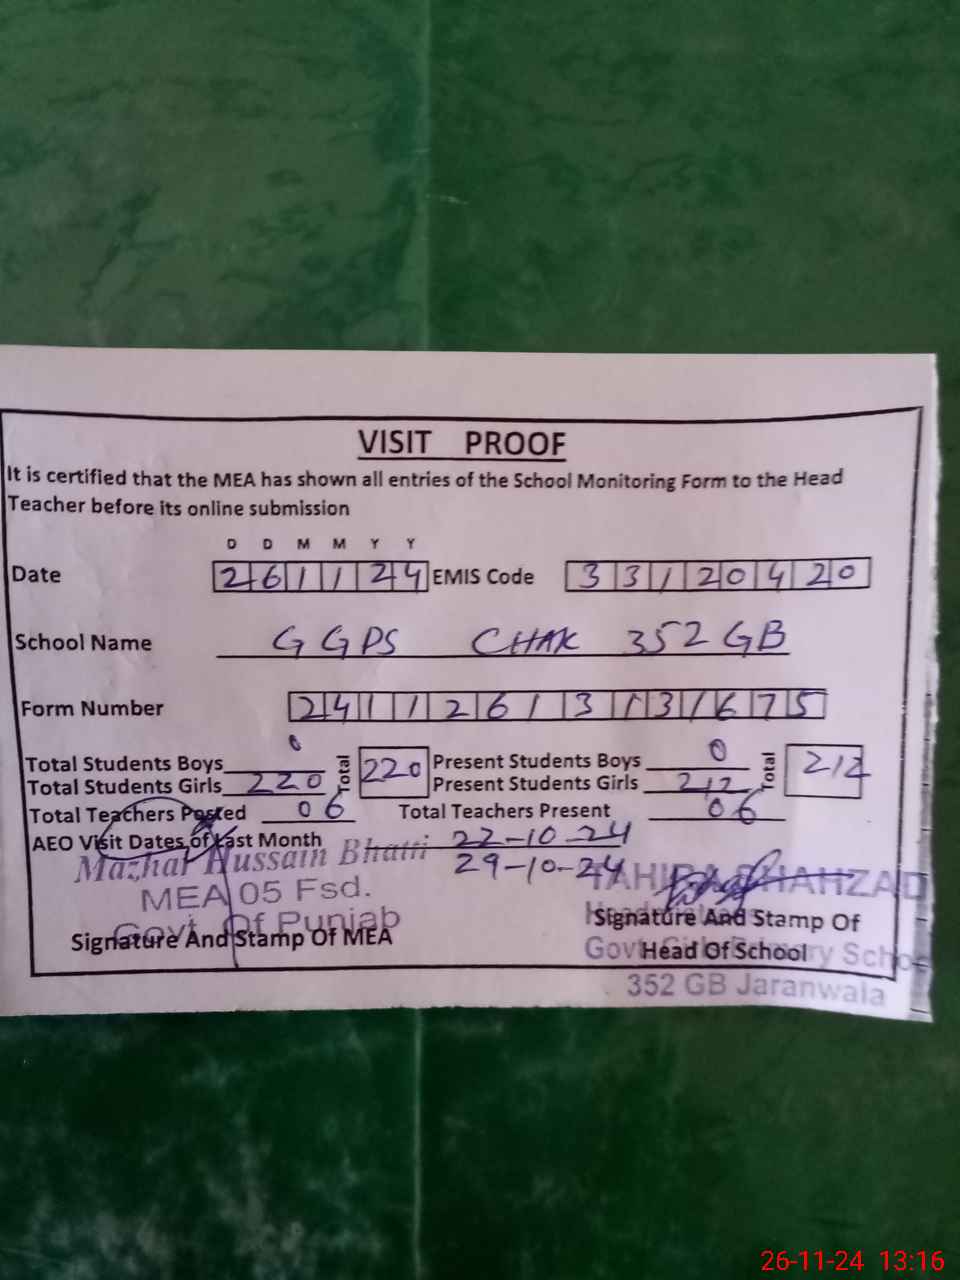 VISIT PROOF
It is certified that the MEA has shown all entries of the School Monitoring Form to the Head
Teacher before its online submission
D D M M Y Y
Date 261124 EMIS Code 33120420
School Name GGPS CHAK 352 GB
Form Number 24112613131675
Total Students Boys 0 Total 220 Present Students Boys 0 Total 212
Total Students Girls 220 Present Students Girls 212
Total Teachers Posted 06 Total Teachers Present 06
AEO Visit Dates of Last Month 22-10-24
29-10-24
Mazhar Hussain Bhatti
MEA 05 Fsd.
Govt. Of Punjab
Signature And Stamp Of MEA
TAHIRA SHAHZAD
Signature And Stamp Of
Head Of School
Govt. Girls Primary School
352 GB Jaranwala
26-11-24 13:16